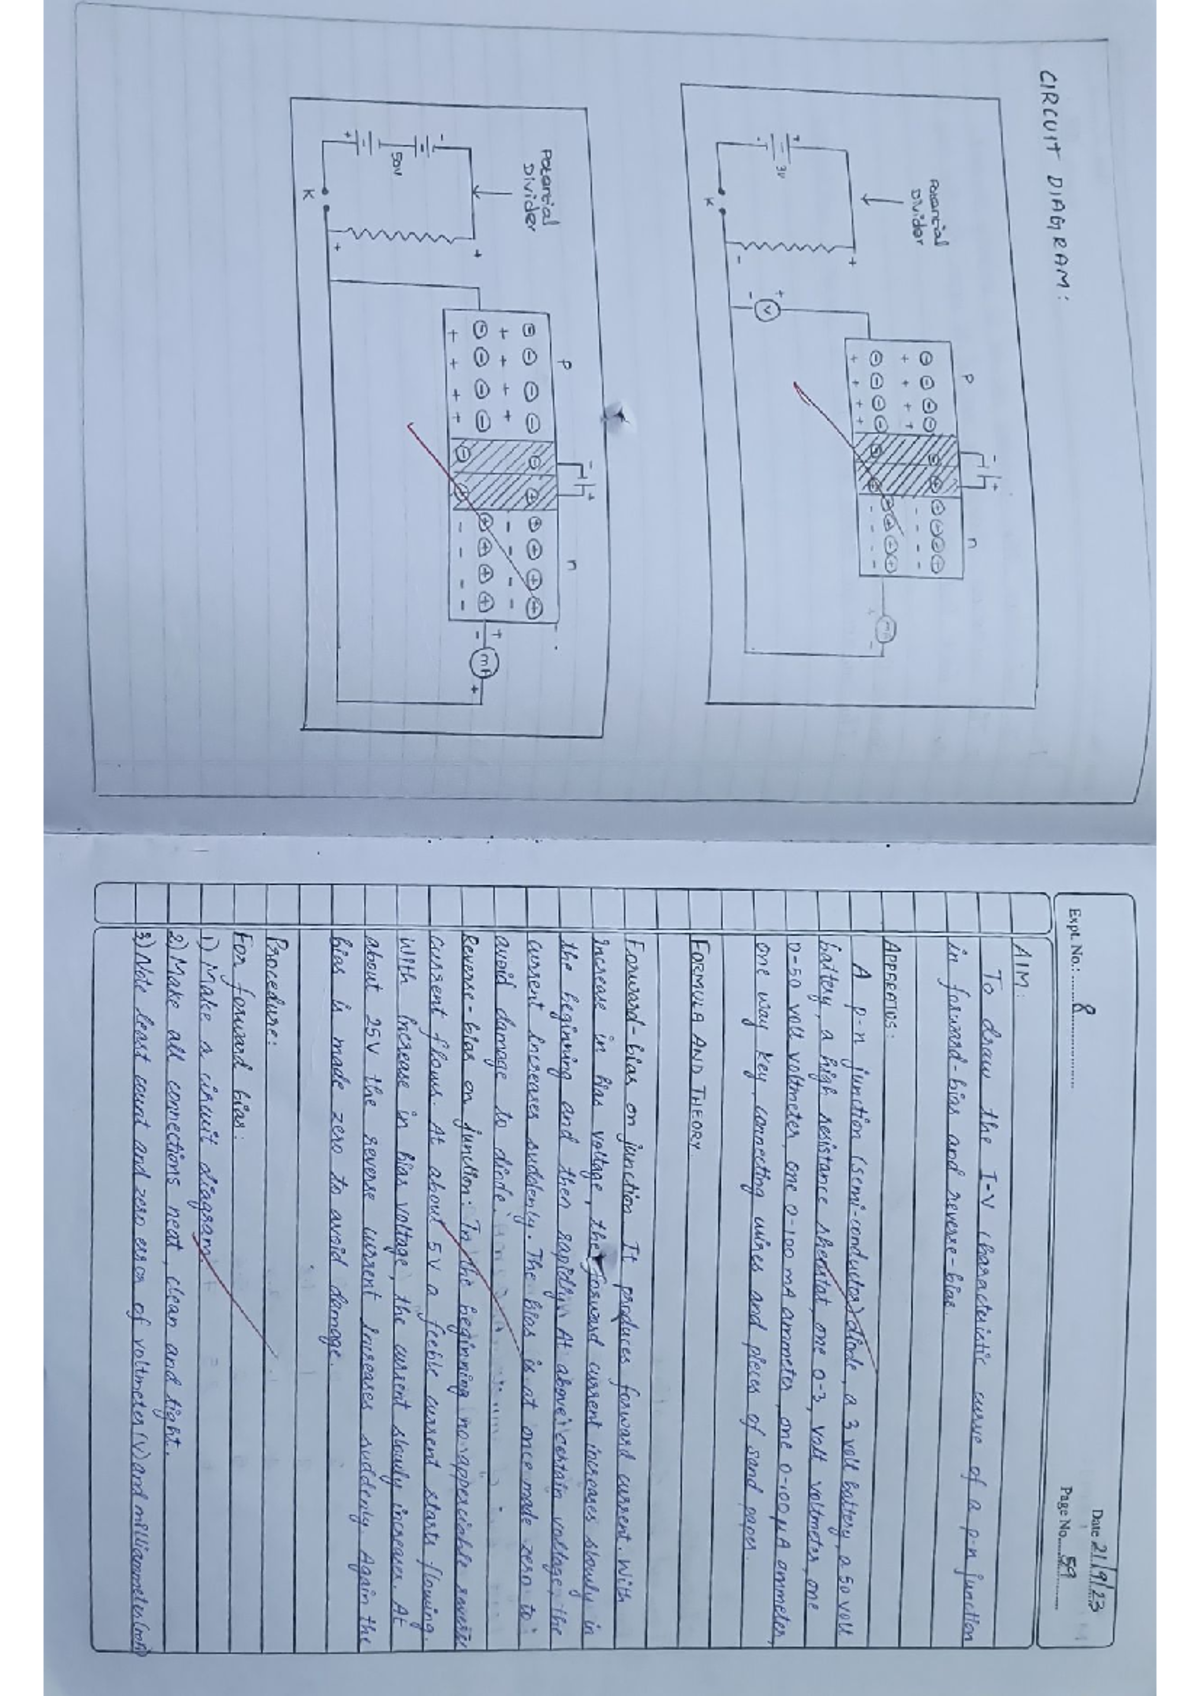 CIRCUIT DIAGRAM:
Potential
Divider
3V
K
V
P
n
mA
Potential
Divider
50V
K
P
n
mA
Expt. No.: 8
Date 21/9/23
Page No. 59
AIM:
To draw the I-V characteristic curve of a p-n junction
in forward-bias and reverse-bias.
APPERATUS:
A p-n junction (semi-conductor) diode, a 3 volt battery, a 50 volt
battery, a high resistance rheostat, one 0-3, volt voltmeter, one
0-50 volt voltmeter, one 0-100 mA ammeter, one 0-100 μA ammeter,
one way key, connecting wires and pieces of sand paper.
FORMULA AND THEORY
Forward-bias on junction It produces forward current. With
increase in bias voltage, the forward current increases slowly in
the beginning and then rapidly. At above certain voltage, the
current increases suddenly. The bias is at once made zero to
avoid damage to diode.
Reverse-bias on junction: In the beginning no appreciable reverse
current flows. At about 5V a feeble current starts flowing.
With increase in bias voltage, the current slowly increases. At
about 25V the reverse current increases suddenly Again the
bias is made zero to avoid damage.
Procedure:
For forward bias:
1) Make a circuit diagram
2) Make all connections neat, clean and tight.
3) Note least count and zero error of voltmeter (V) and milliammeter (mA)